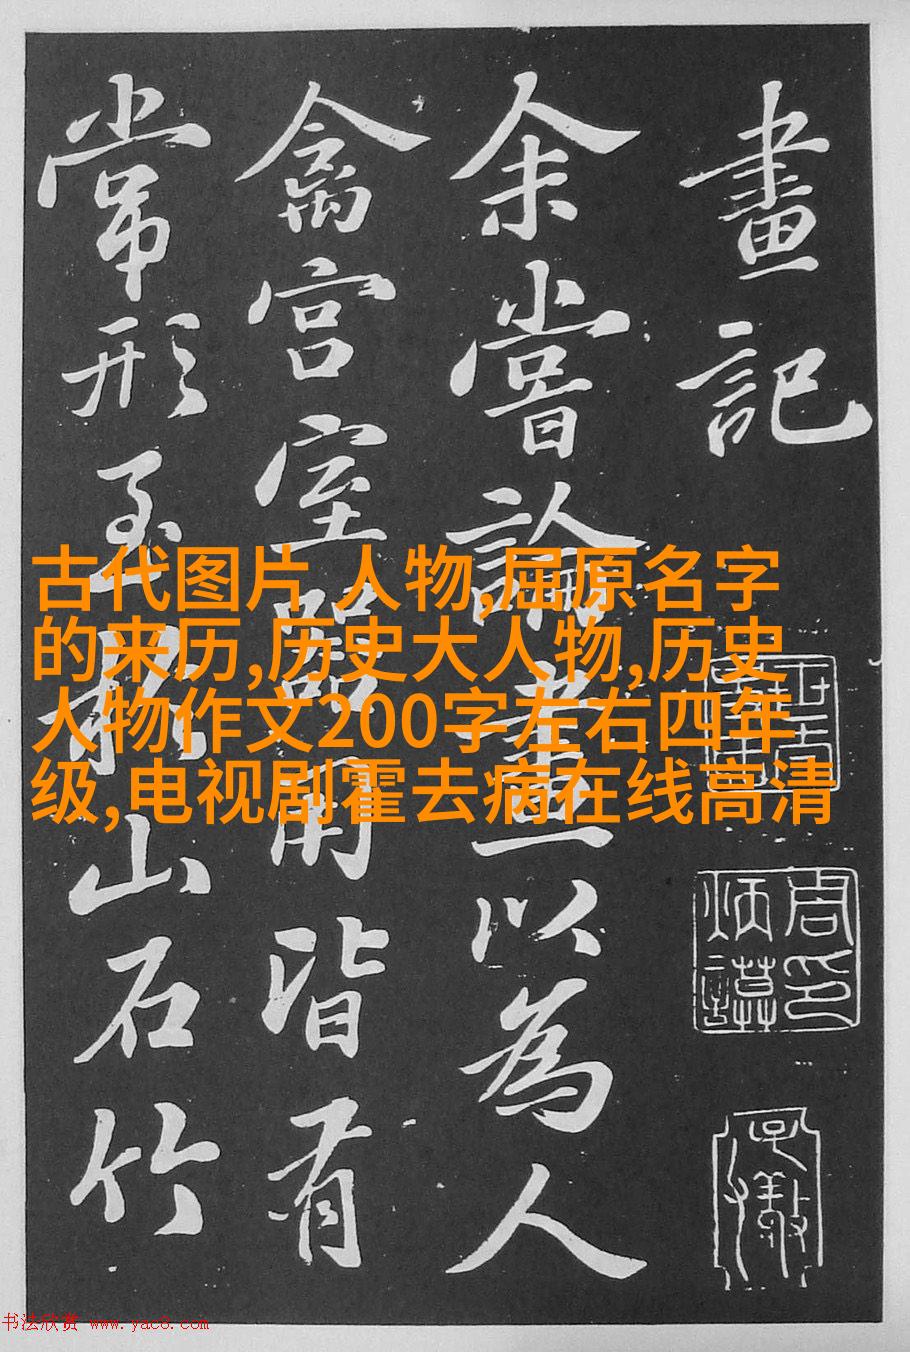 畫記
余嘗論畫以為人
禽宮室器用皆有
常形至於山石竹
古代图片 人物,屈原名字
的来历,历史大人物,历史
人物作文200字左右四年
级,电视剧霍去病在线高清
周印
炳謨
书法欣赏 www.yac8.com